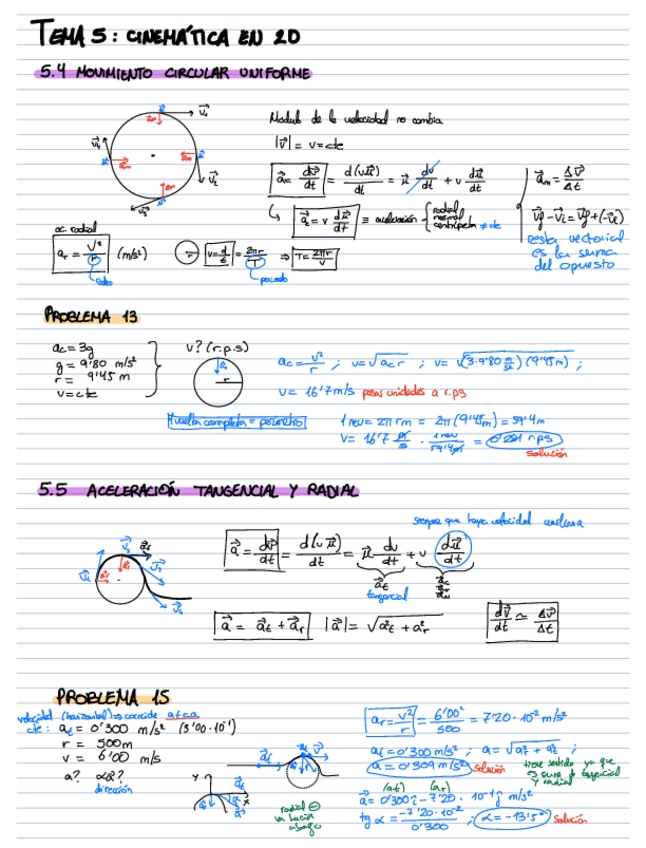 TEMA 5: CINEMÁTICA EN 2D
5.4 MOVIMIENTO CIRCULAR UNIFORME
Modulo de la velocidad no cambia
|v⃗| = v = cte
a⃗ = dv⃗/dt = d(vu⃗)/dt = u⃗ dv/dt + v du⃗/dt
a⃗m = Δv⃗/Δt
a⃗c = v du⃗/dt ≡ aceleración { radial normal centrípeta ≠ cte
v⃗f - v⃗i = v⃗f + (-v⃗i)
resta vectorial
es la suma
del opuesto
ac radial
ar = v²/r (m/s²)
radio
r
v = d/t = 2πr/T ⇒ T = 2πr/v
periodo
PROBLEMA 13
ac = 3g
g = 9'80 m/s²
r = 9'45 m
v = cte
v? (r.p.s)
r
ac = v²/r ; v = √ac r ; v = √(3·9'80 m/s²)(9'45m) ;
v = 16'7 m/s pasas unidades a r.p.s
1 vuelta completa = perímetro
1 rev = 2π r m = 2π (9'45m) = 59'4m
v = 16'7 m/s · 1 rev/59'4m = 0'281 r.p.s
solución
5.5 ACELERACIÓN TANGENCIAL Y RADIAL
siempre que haya velocidad
a⃗ = dv⃗/dt = d(vu⃗)/dt = u⃗ dv/dt + v du⃗/dt
a⃗t
tangencial
a⃗ = a⃗t + a⃗r
|a⃗| = √a²t + a²r
dv⃗/dt ≃ Δv⃗/Δt
PROBLEMA 15
velocidad (horizontal) ⇒ coincide at = a
cte: at = 0'300 m/s² (3'00·10⁻¹)
r = 500m
v = 6'00 m/s
a? α? ?
dirección
radial ⊖
va hacia
abajo
ar = v²/r = 6'00²/500 = 7'20·10⁻² m/s²
at = 0'300 m/s² ; a = √ar² + at² ;
a = 0'309 m/s² solución
tiene sentido ya que
es suma d tangencial
y radial
(at) (ar)
tg α = -7'20·10⁻²/0'300 ; α = -13'5° solución